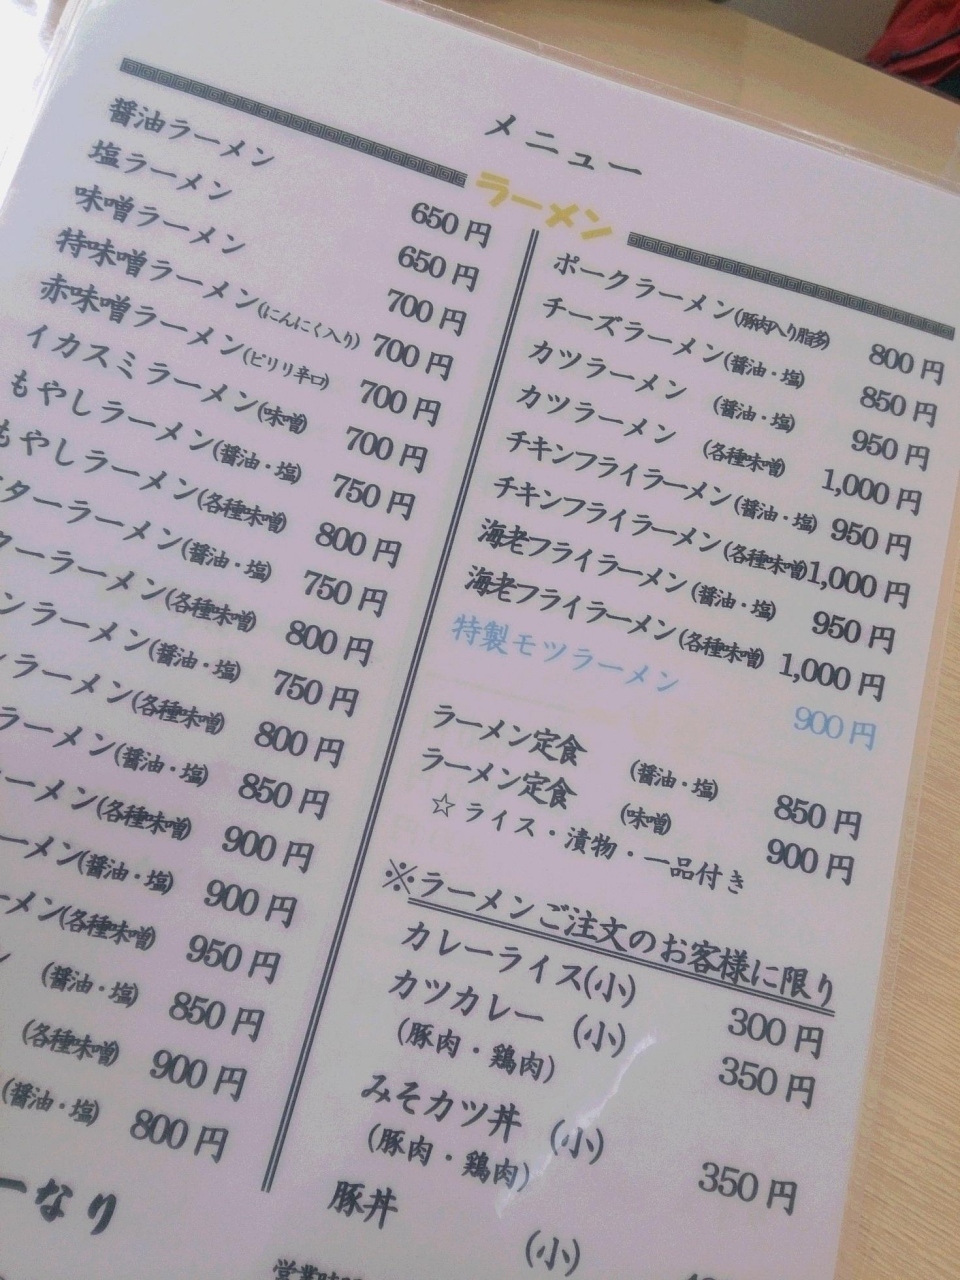 メニュー
ラーメン
醤油ラーメン 650円
塩ラーメン 650円
味噌ラーメン 700円
特味噌ラーメン(にんにく入り) 700円
赤味噌ラーメン(ピリリ辛口) 700円
イカスミラーメン(味噌) 700円
もやしラーメン(醤油・塩) 750円
もやしラーメン(各種味噌) 800円
ターラーメン(醤油・塩) 750円
ターラーメン(各種味噌) 800円
ンラーメン(醤油・塩) 750円
ラーメン(各種味噌) 800円
ラーメン(醤油・塩) 850円
ーメン(各種味噌) 900円
ーメン(醤油・塩) 900円
ーメン(各種味噌) 950円
ン (醤油・塩) 850円
(各種味噌) 900円
(醤油・塩) 800円
ーなり
ポークラーメン(豚肉入り脂多) 800円
チーズラーメン(醤油・塩) 850円
カツラーメン (醤油・塩) 950円
カツラーメン (各種味噌) 1,000円
チキンフライラーメン(醤油・塩) 950円
チキンフライラーメン(各種味噌) 1,000円
海老フライラーメン(醤油・塩) 950円
海老フライラーメン(各種味噌) 1,000円
特製モツラーメン 900円
ラーメン定食 (醤油・塩) 850円
ラーメン定食 (味噌) 900円
☆ライス・漬物・一品付き
※ラーメンご注文のお客様に限り
カレーライス(小) 300円
カツカレー (小) 350円
(豚肉・鶏肉)
みそカツ丼 (小) 350円
(豚肉・鶏肉)
豚丼 (小)